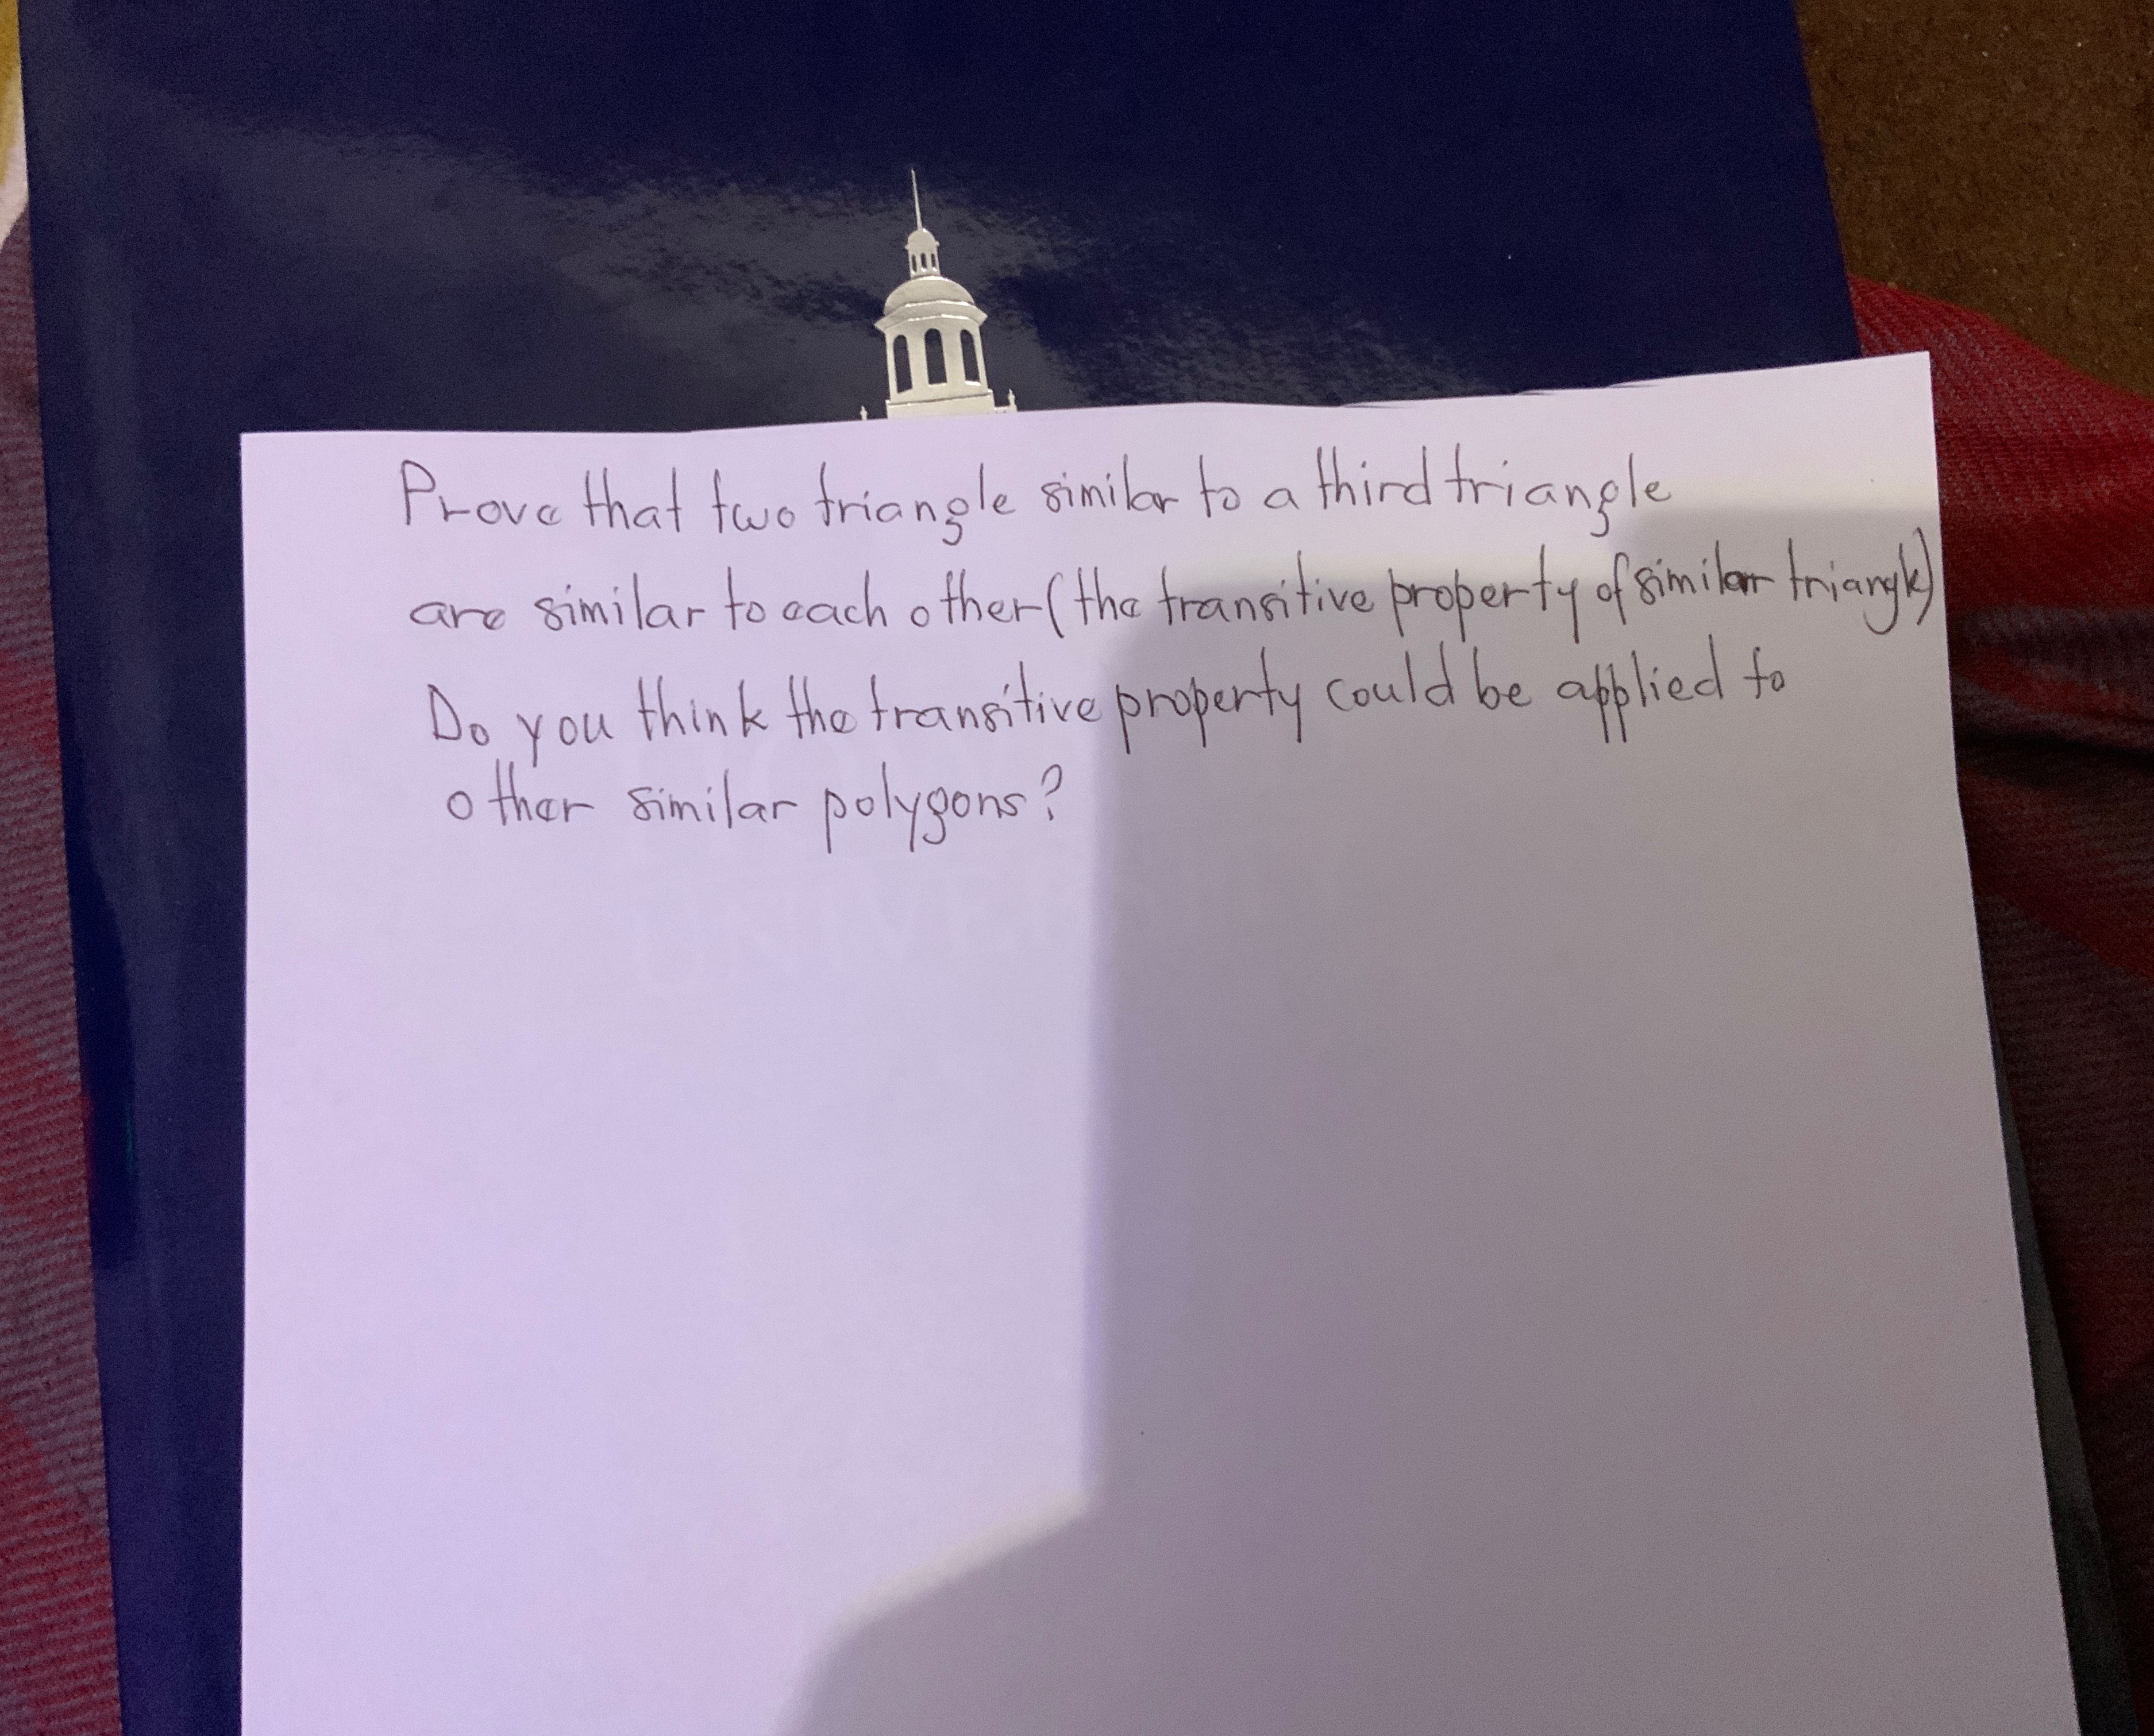 Prove that two triangle similar to a third triangle
are similar to each other (the transitive property of similar triangle)
Do you think the transitive property could be applied to
other similar polygons?